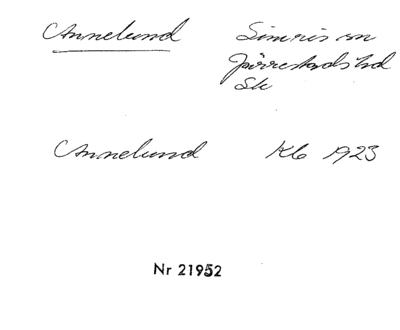 Annelund Simris sn
Järrestads hd
Sk
Annelund Kb 1923
Nr 21952